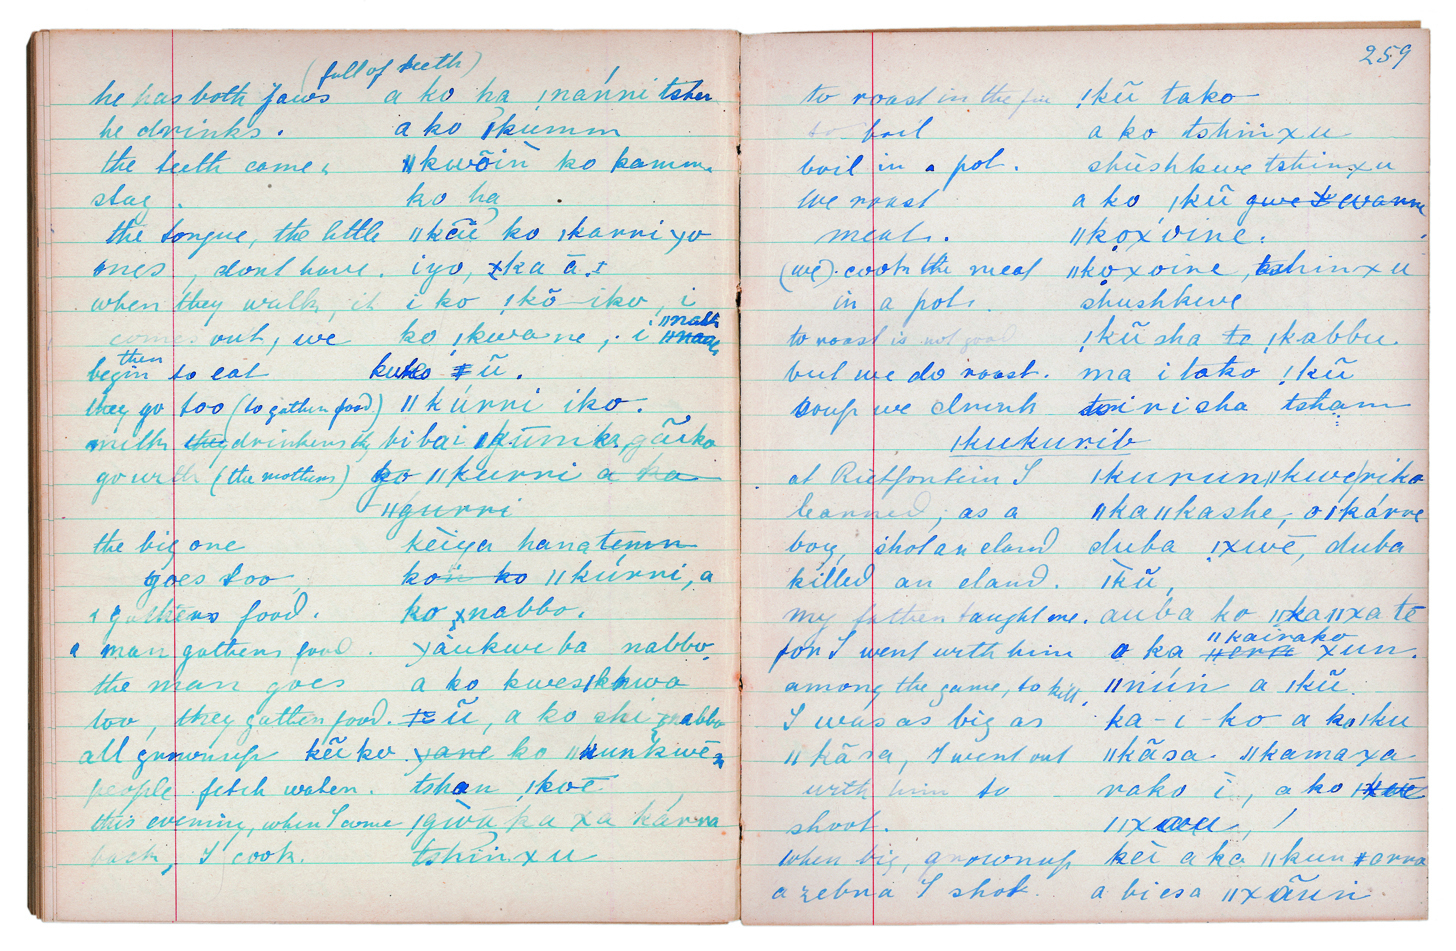 (full of teeth)
he has both jaws a ko ha ǃnánni tsher
he drinks. a ko ǀkumm
the teeth come, ǁkwõin ko kamm.
stay. ko ha
the tongue, the little ǁkẽũ ko ǀkarri yo
ones, dont have. iyo, ka ā.
when they walk, it i ko, ǃkõ iko, i
comes out, we ko ǀkwa ne, i ǁnabh
then
begin to eat kuko ǂũ.
they go too (to gather food) ǁkúrri iko.
milk they drinkers by bi bai
go with (the mothers) ko ǁkurri a ka
ǁgurri
the big one kèiya hanatemn
goes too, ko ǁkúrri, a
a gathers food. ko nabbo.
a man gathers food. yàukwe ba nabbo,
the man goes a ko kwes
too, they gather food. ũ, a ko shi nabbo
all grownup kẽi ko yane ko ǁkunkwē
people fetch water. tshan ǃkoē
this evening, when I come ǀgiwa ka xa kárra
back, I cook. tshin x u
259
to roast in the fire ǃkũ tako
to boil a ko tshin x u
boil in a pot. shùshkwe tshinxu
we roast a ko, ǀkũ gwe
meat. ǁkoxoine.
(we) cook the meat ǁkoxoine, tshinxu
in a pot. shushkwe
to roast is not good ǃkũ sha ta ǀkabbu.
but we do roast. ma i tako ǃkũ
soup we drink iri sha tsham
ǀkukurib
at Rietfontein I ǀkurunǁkwe/riko
learned, as a ǁkaǁkashe, oǀkárre
boy, shot an eland duba ǃxwē, duba
killed an eland. ǀkũ,
my father taught me. auba ko ǁkaǁxa tē
ǁkairako
for I went with him a ka xun.
among the game, to kill, ǁnún a ǀkũ.
I was as big as ka-ı-ko a koǀku
ǁkãsa, I went out ǁkãsa ǁkamaxa
with him to rako ī, a ko
shoot. ǁxau, ǃ
when big, grownup kèi aka ǁkun ǂarra
a zebra I shot a biesa ǁxãun